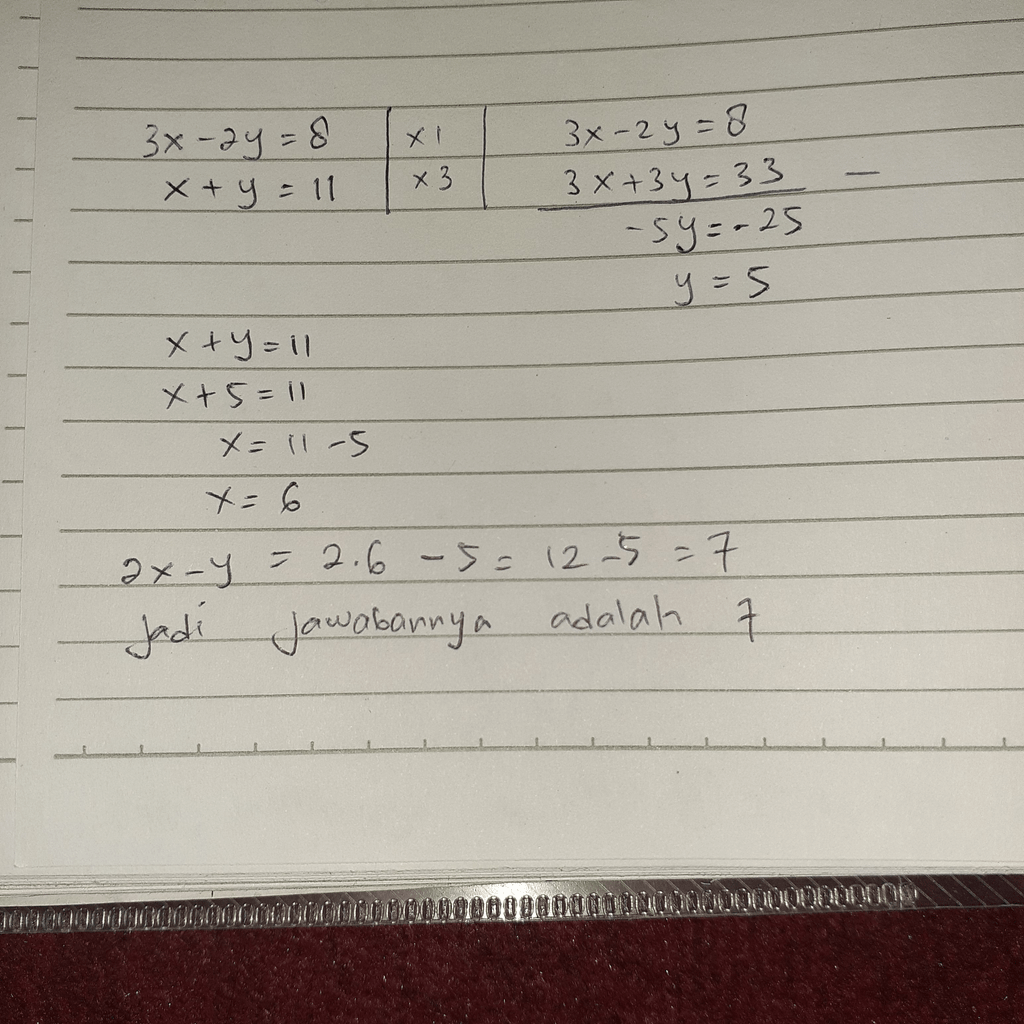 3x - 2y = 8 | x1 | 3x - 2y = 8
x + y = 11 | x3 | 3x + 3y = 33 -
-5y = -25
y = 5
x + y = 11
x + 5 = 11
x = 11 - 5
x = 6
2x - y = 2.6 - 5 = 12 - 5 = 7
Jadi jawabannya adalah 7